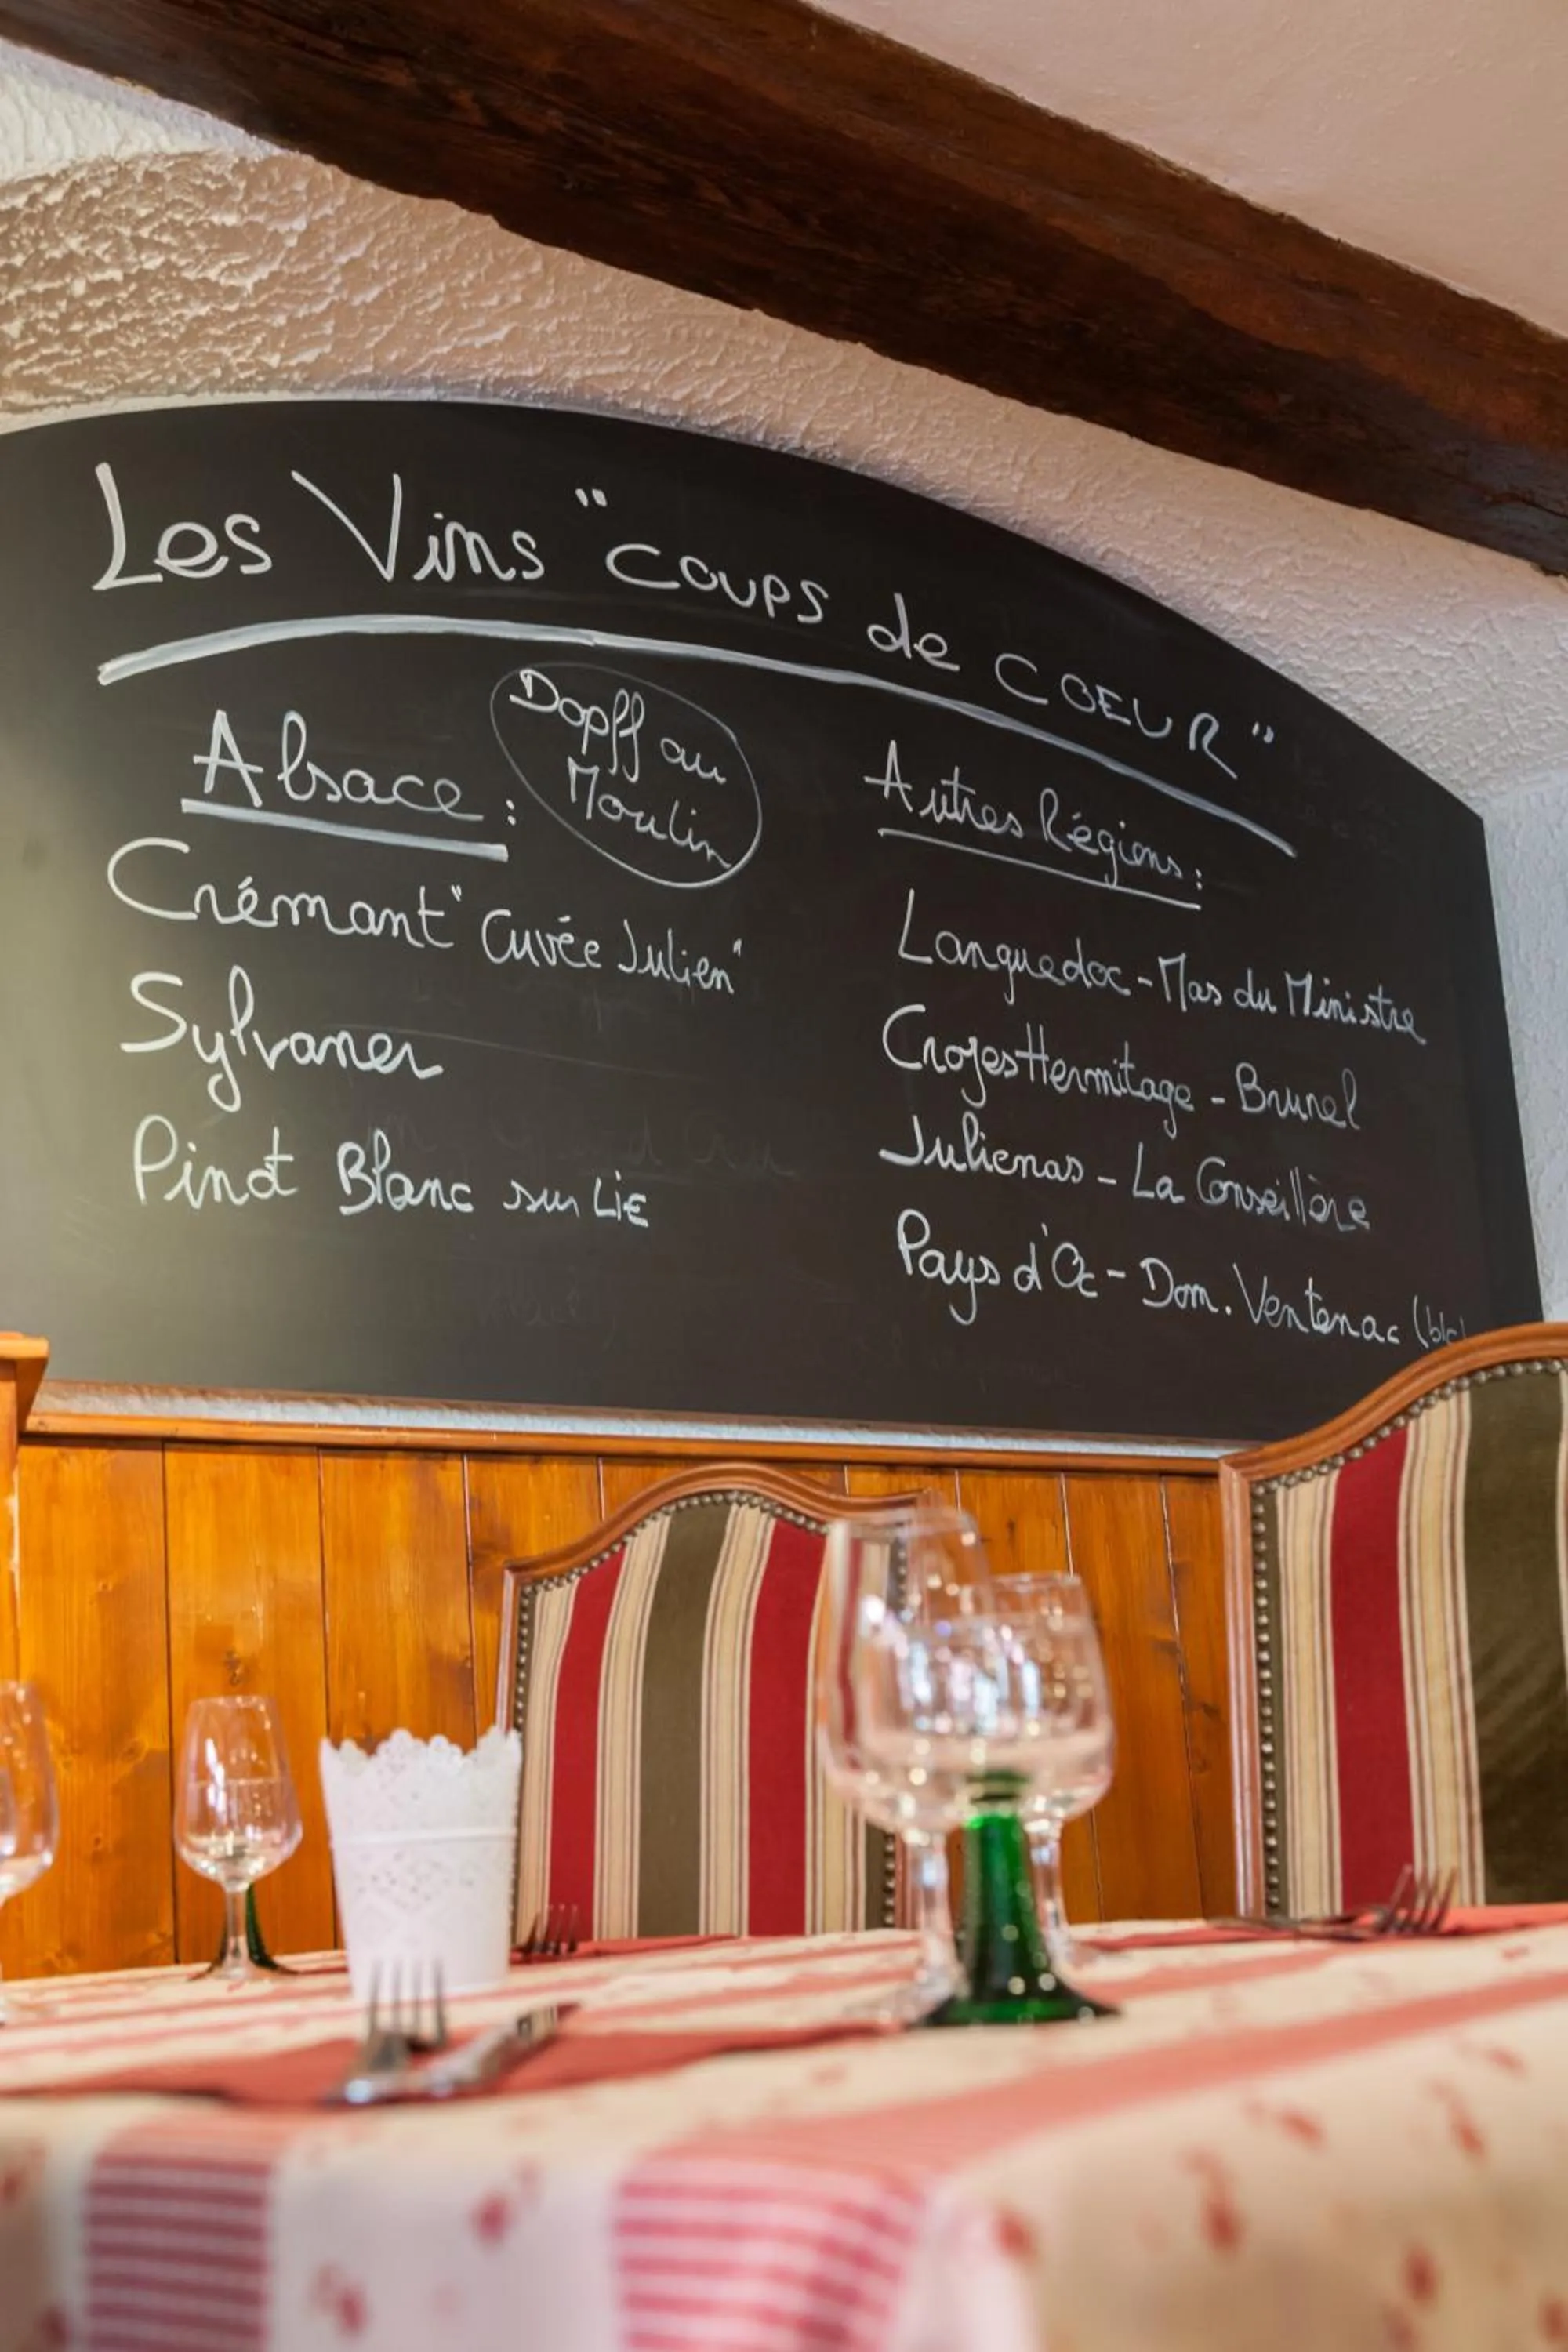 Les Vins "COUPS de COEUR"
Alsace :
Dopff au
Moulin
Crémant "Cuvée Julien"
Sylvaner
Pinot Blanc sur LiE
Autres Régions :
Languedoc - Mas du Ministre
Crozes Hermitage - Brunel
Julienas - La Conseillère
Pays d'Oc - Dom. Ventenac (blc)